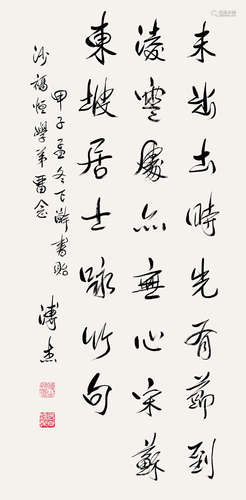 未出土時先有節到
凌雲處亦無心宋蘇
東坡居士咏竹句
甲子孟冬下澣書貽
沙福恒學弟留念
溥杰